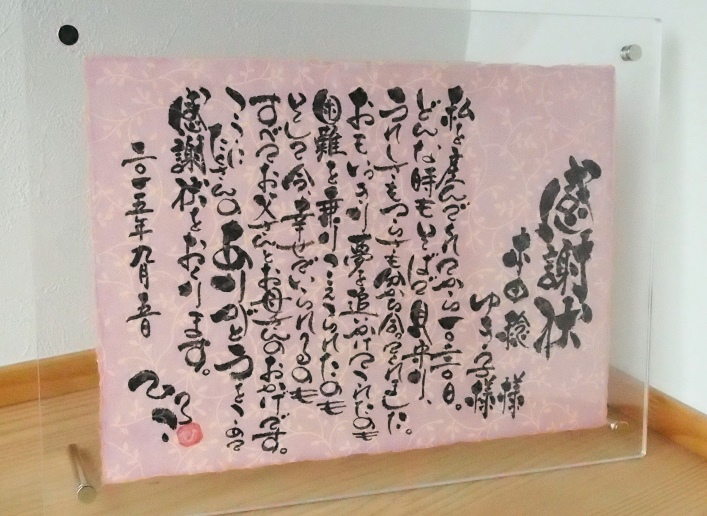 感謝状
幸田 稔 様
ゆき子 様
私を産んでくれてから一〇、三六〇日。
どんな時もいそばで見守り、
うれしさもつらさも分かち合ってくれました。
おもいっきり夢を追いかけてこれたのも
困難を乗りこえられたのも
そして今、幸せでいられるのも
すべてお父さんとお母さんのおかげです。
ここに たくさんの ありがとう をこめて
感謝状をおくります。
二〇一五年九月 吉日
ひろこ